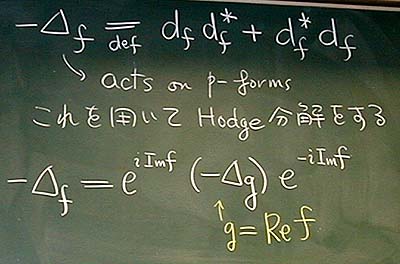 -Δ_f =_def d_f d_f^* + d_f^* d_f
↳ acts on p-forms
これを用いて Hodge 分解をする
-Δ_f = e^{i Im f} (-Δ_g) e^{-i Im f}
↑ g = Re f